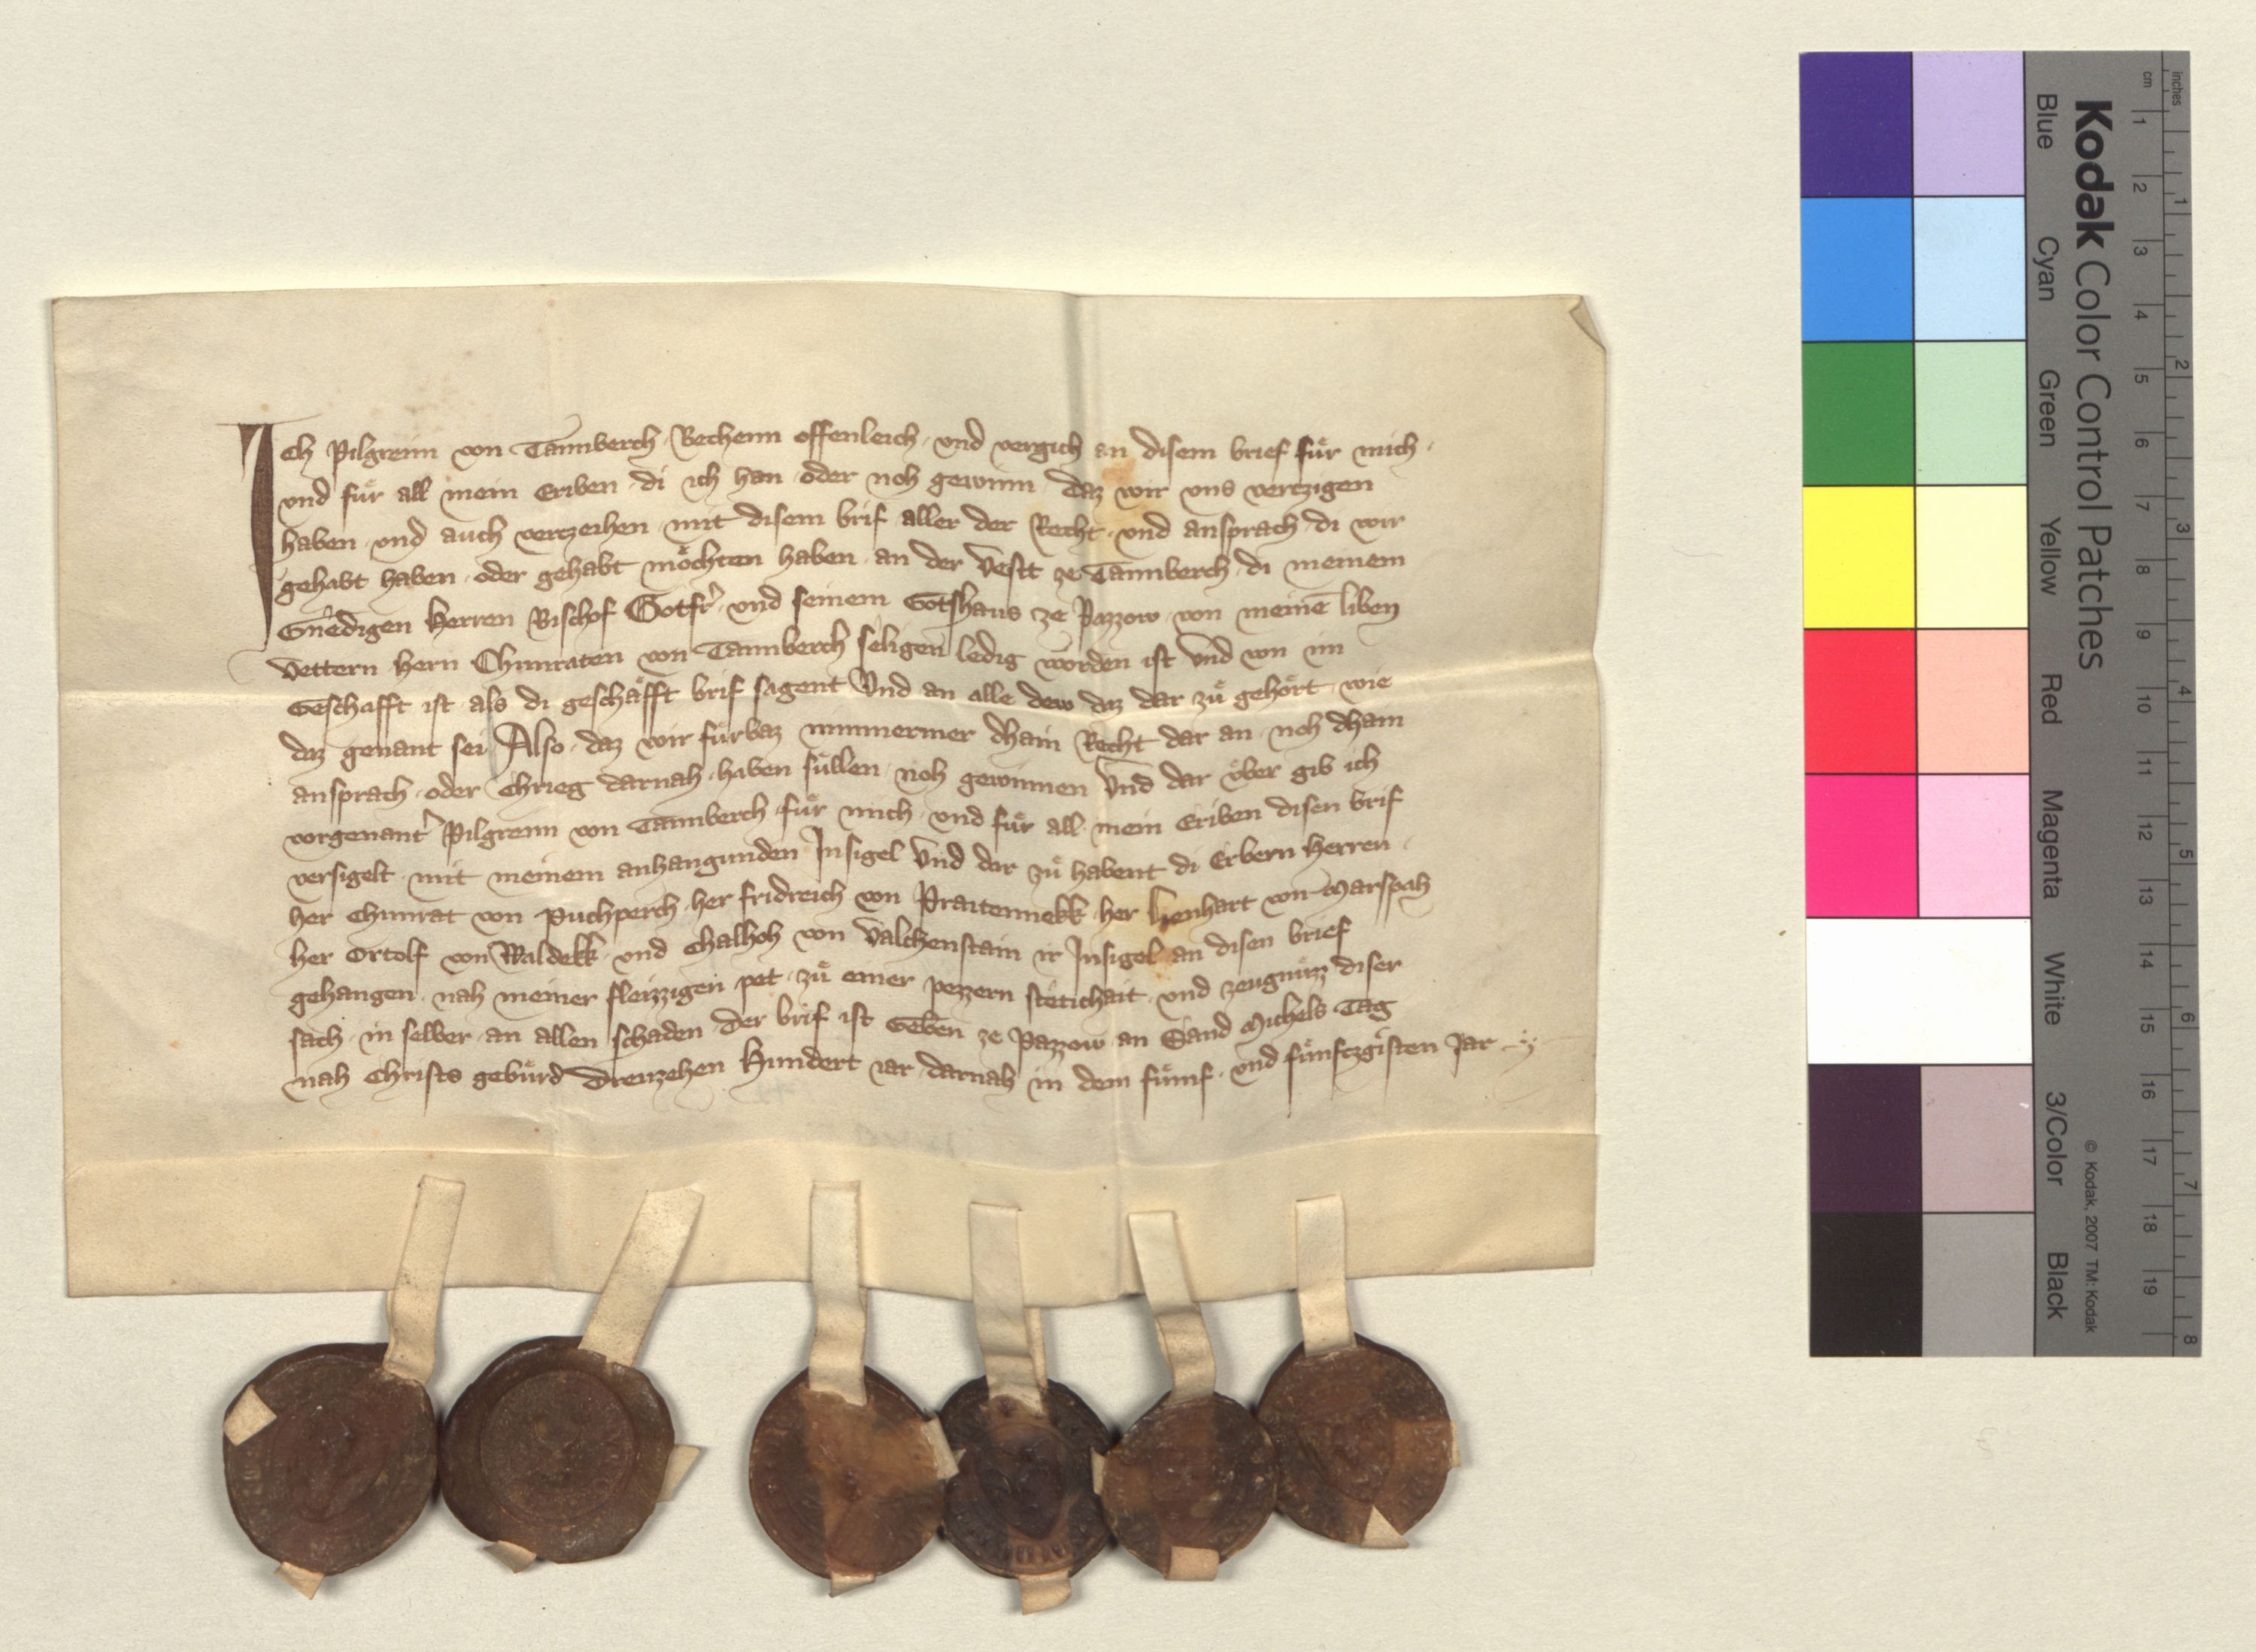 Ich Pilgreim von Tannberch · Bechenn offenleich · vnd vergich an disem brief fuͤr mich ·
vnd fuͤr all mein Eriben · di ich han · oder noh gewinn daz wir vns vertzigen
haben · vnd auch vertzeihen · mit disem brif aller der Recht · vnd ansprach · di wir
gehabt haben · oder gehabt moͤchten haben · an der Vest ze Tannberch · di meinem
Gnedigen Herren Bischof Gotfr · vnd seinem Gotshaus ze Pazzow · von meinē liben
Vettern hern Chunraten von Tannberch seligen ledig worden ist vnd von im
Geschafft ist · als di geschaͤfft brif sagent Vnd an alle dew daz dar zuͤ gehoͤrt · wie
daz genant sei Also · daz wir fuͤrbaz nimmermer dhain Recht dar an · noh dhain
ansprach · oder Chrieg darnah · haben suͤllen · noh gewinnen Vnd dar vͤber gib ich
vorgenant Pilgreim von Tannberch fuͤr mich · vnd fuͤr all · mein Eriben disen brif
versigelt · mit meinem anhangunden Insigel Vnd dar zuͤ habent di Erbern Herren ·
her Chunrat von Puchperch · her fridreich von Praitennekk · her Lienhart von Marspah
her Ortolf von Waldekk · vnd Chalhoh von Valchenstain ir Insigel an disen brief
gehangen · nah meiner fleizzigen pet · zuͤ einer pezzern stetichait · vnd zeugnuͤzz diser
sach · in selber · an allen schaden · Der brif ist Geben ze Pazzow an Sand Michels Tag
nah Christs gebuͤrd Dreuzehen Hundert iar · darnah in dem fuͤmf · vnd fuͤnftzgisten Jar
Kodak Color Control Patches
Blue Cyan Green Yellow Red Magenta White 3/Color Black
© Kodak, 2007 TM: Kodak
cm 1 2 3 4 5 6 7 8 9 10 11 12 13 14 15 16 17 18 19
inches 1 2 3 4 5 6 7 8